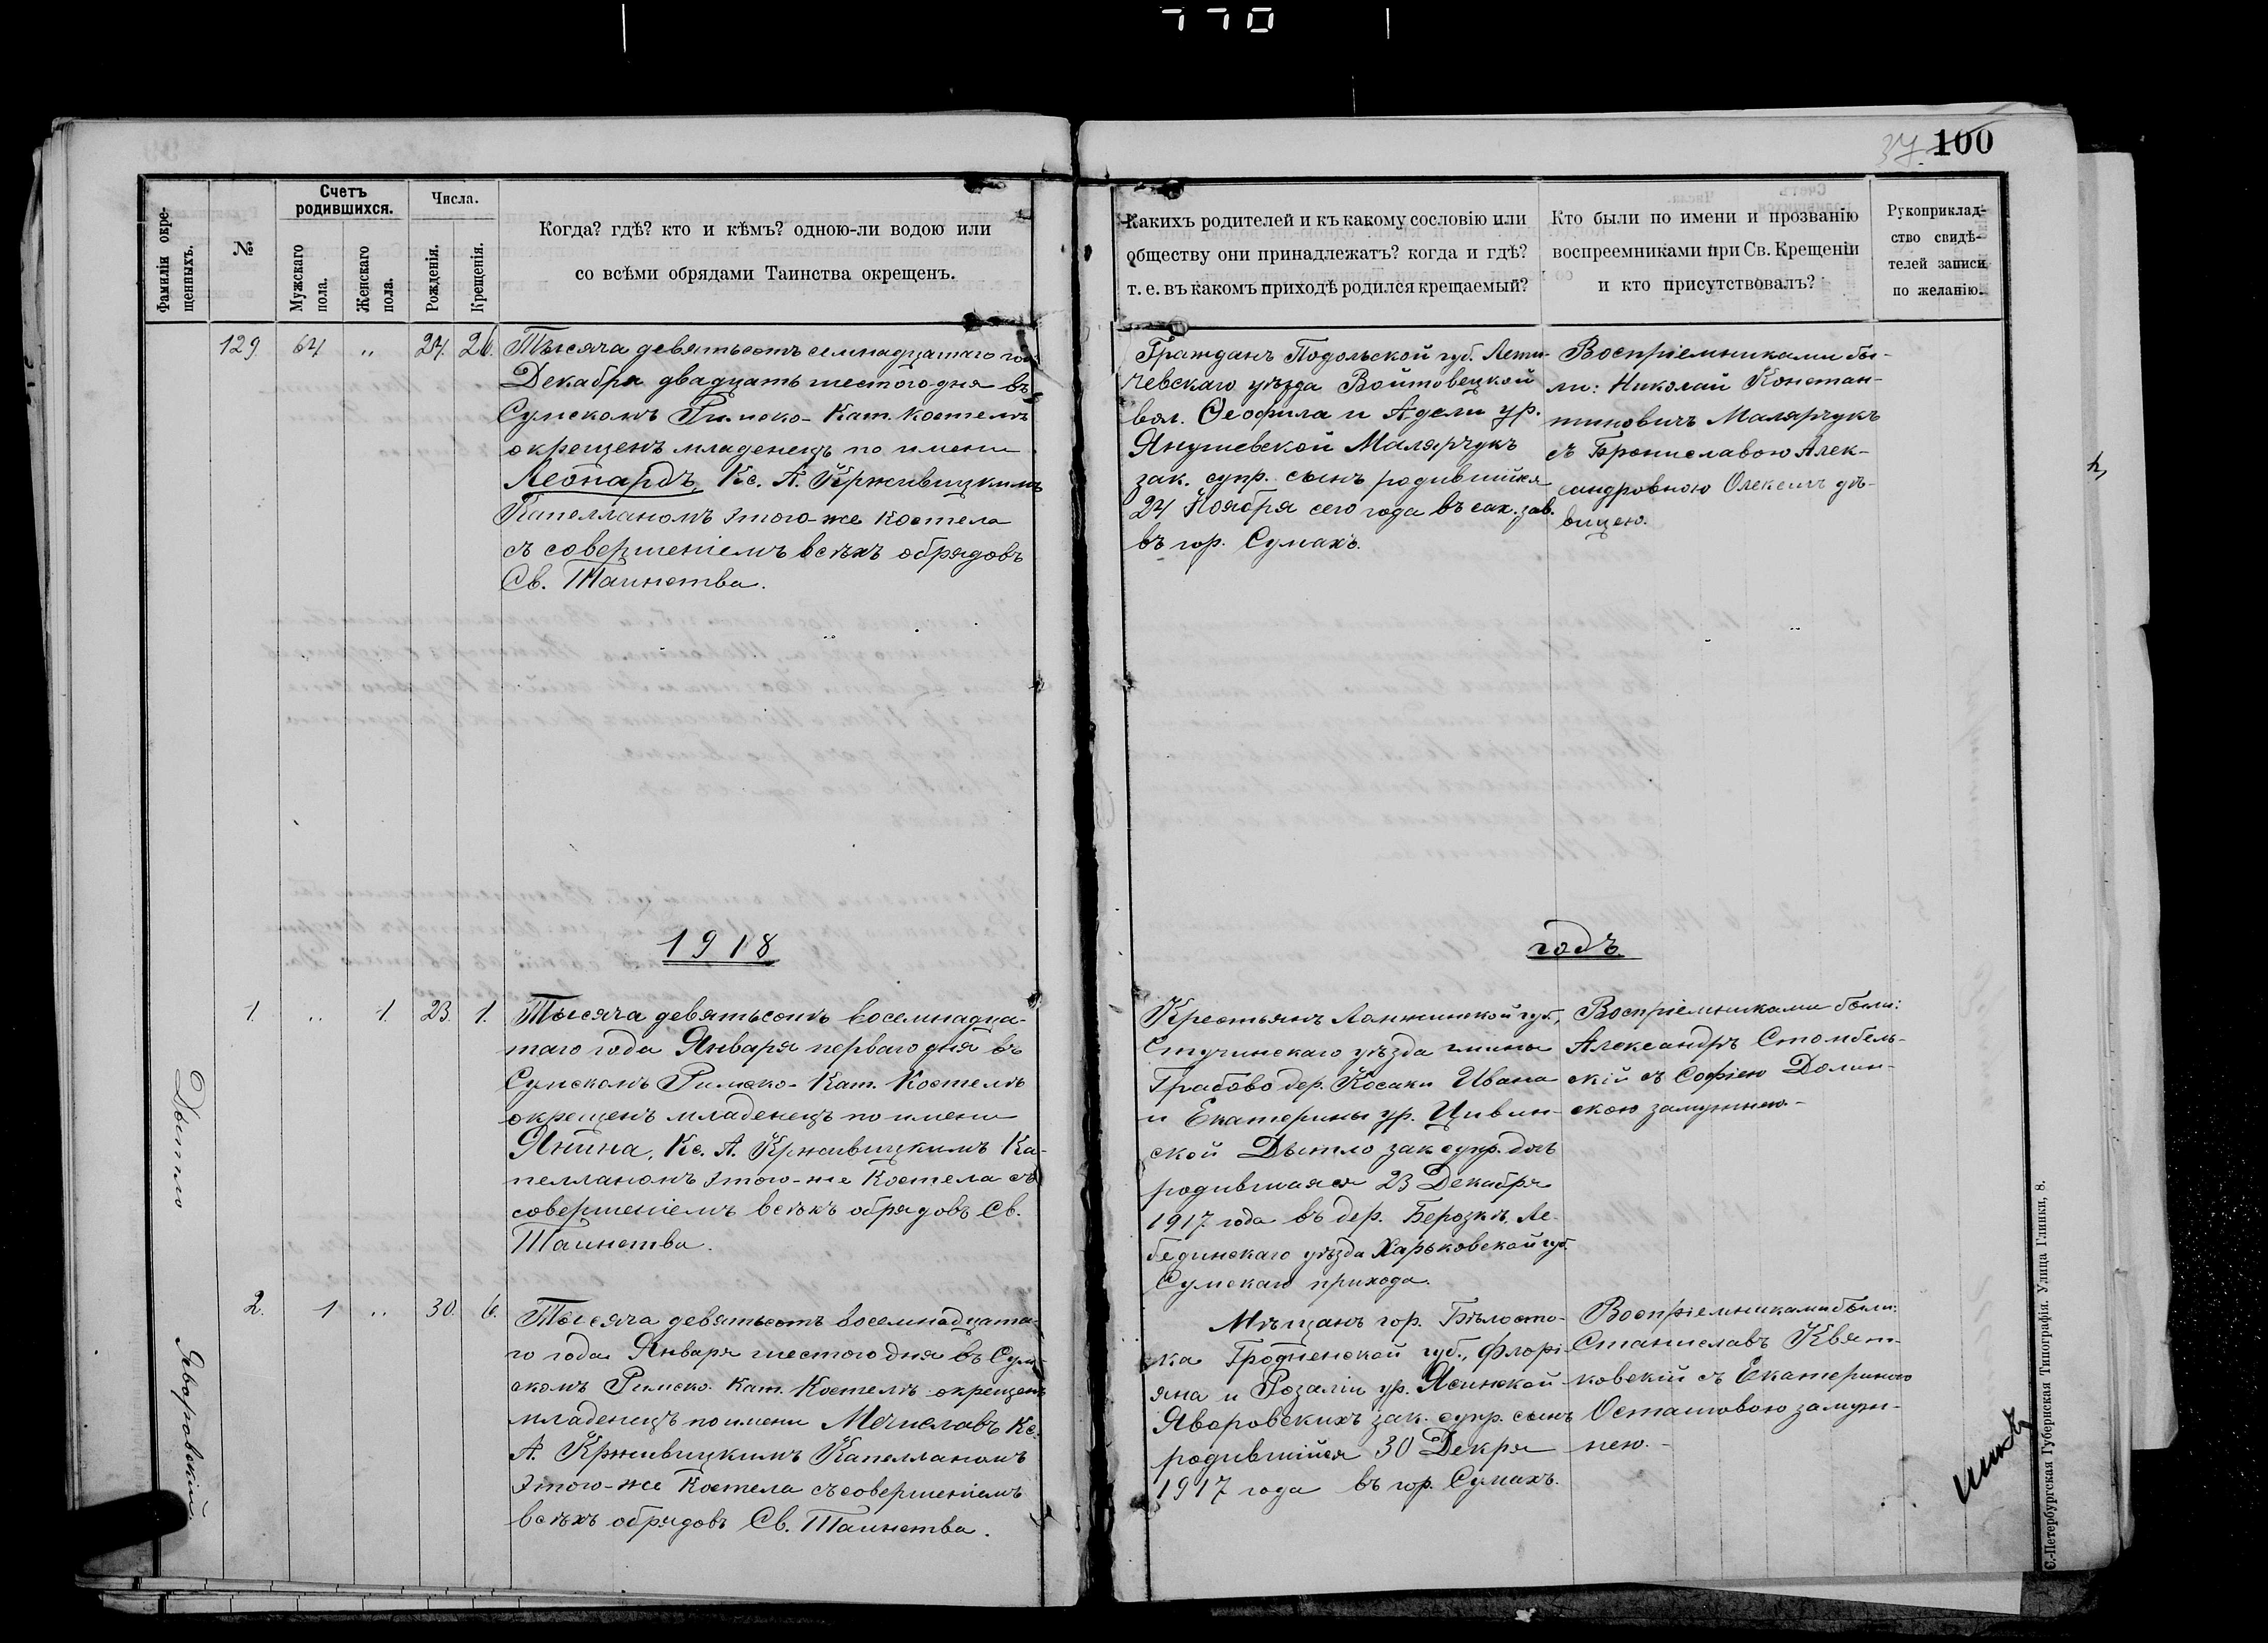 770
37. 100
Фамиліи окре-
щенныхъ.
№
Счетъ
родившихся.
Мужскаго
пола.
Женскаго
пола.
Числа.
Рожденія.
Крещенія.
Когда? гдѣ? кто и кѣмъ? одною-ли водою или
со всѣми обрядами Таинства окрещенъ.
Какихъ родителей и къ какому сословію или
обществу они принадлежатъ? когда и гдѣ?
т. е. въ какомъ приходѣ родился крещаемый?
Кто были по имени и прозванію
воспреемниками при Св. Крещеніи
и кто присутствовалъ?
Рукоприклад-
ство свидѣ-
телей записи
по желанію.
129. 64 „ 24. 26.
Тысяча девятьсотъ семнадцатаго года
Декабря двадцать шестого дня въ
Сумскомъ Римско-Кат. Костелѣ
окрещенъ младенецъ по имени
Леонардъ, Кс. А. Крживицкимъ
Капелланомъ этого-же Костела
съ совершеніемъ всѣхъ обрядовъ
Св. Таинства.
Гражданъ Подольской губ. Лети-
чевскаго уѣзда Войтовецкой
вол. Ѳеофила и Адели ур.
Янушевской Малярчукъ
зак. супр. сынъ родившійся
24 Ноября сего года въ сах. зав.
въ гор. Сумахъ.
Воспріемниками бы-
ли: Николай Констан-
тиновичъ Малярчукъ
съ Брониславою Алек-
сандровною Олексимъ дѣ-
вицею.
1918 годъ
Дытло
1. „ 1. 23. 1.
Тысяча девятьсотъ восемнадца-
таго года Января перваго дня въ
Сумскомъ Римско-Кат. Костелѣ
окрещенъ младенецъ по имени
Янина, Кс. А. Крживицкимъ Ка-
пелланомъ этого-же Костела съ
совершеніемъ всѣхъ обрядовъ Св.
Таинства.
Крестьянъ Ломжинской губ.,
уѣзда гмины
Грабово дер. Косаки Ивана
и Екатерины ур. Цивин-
ской Дытло зак. супр. дочь
родившаяся 23 Декабря
1917 года въ дер. Березкѣ, Ле-
бединскаго уѣзда Харьковской губ.
Сумскаго прихода.
Воспріемниками были:
Александръ Стомбель-
скій съ Софіею Долин-
скою замужнею.-
Яворовскій
2. 1 „ 30. 6.
Тысяча девятьсотъ восемнадцата-
го года Января шестого дня въ Сум-
скомъ Римско-Кат. Костелѣ окрещенъ
младенецъ по имени Мечиславъ Кс.
А. Крживицкимъ Капелланомъ
этого-же Костела съ совершеніемъ
всѣхъ обрядовъ Св. Таинства.
Мѣщанъ гор. Бѣлосто-
ка Гродненской губ., Флорі-
яна и Розаліи ур. Ясинской
Яворовскихъ зак. супр. сынъ
родившійся 30 Декря
1917 года въ гор. Сумахъ.
Воспріемниками были:
Станиславъ Квят-
ковскій съ Екатериною
Осташовою замуж-
нею.-
С.-Петербургская Губернская Типографія. Улица Глинки, 8.